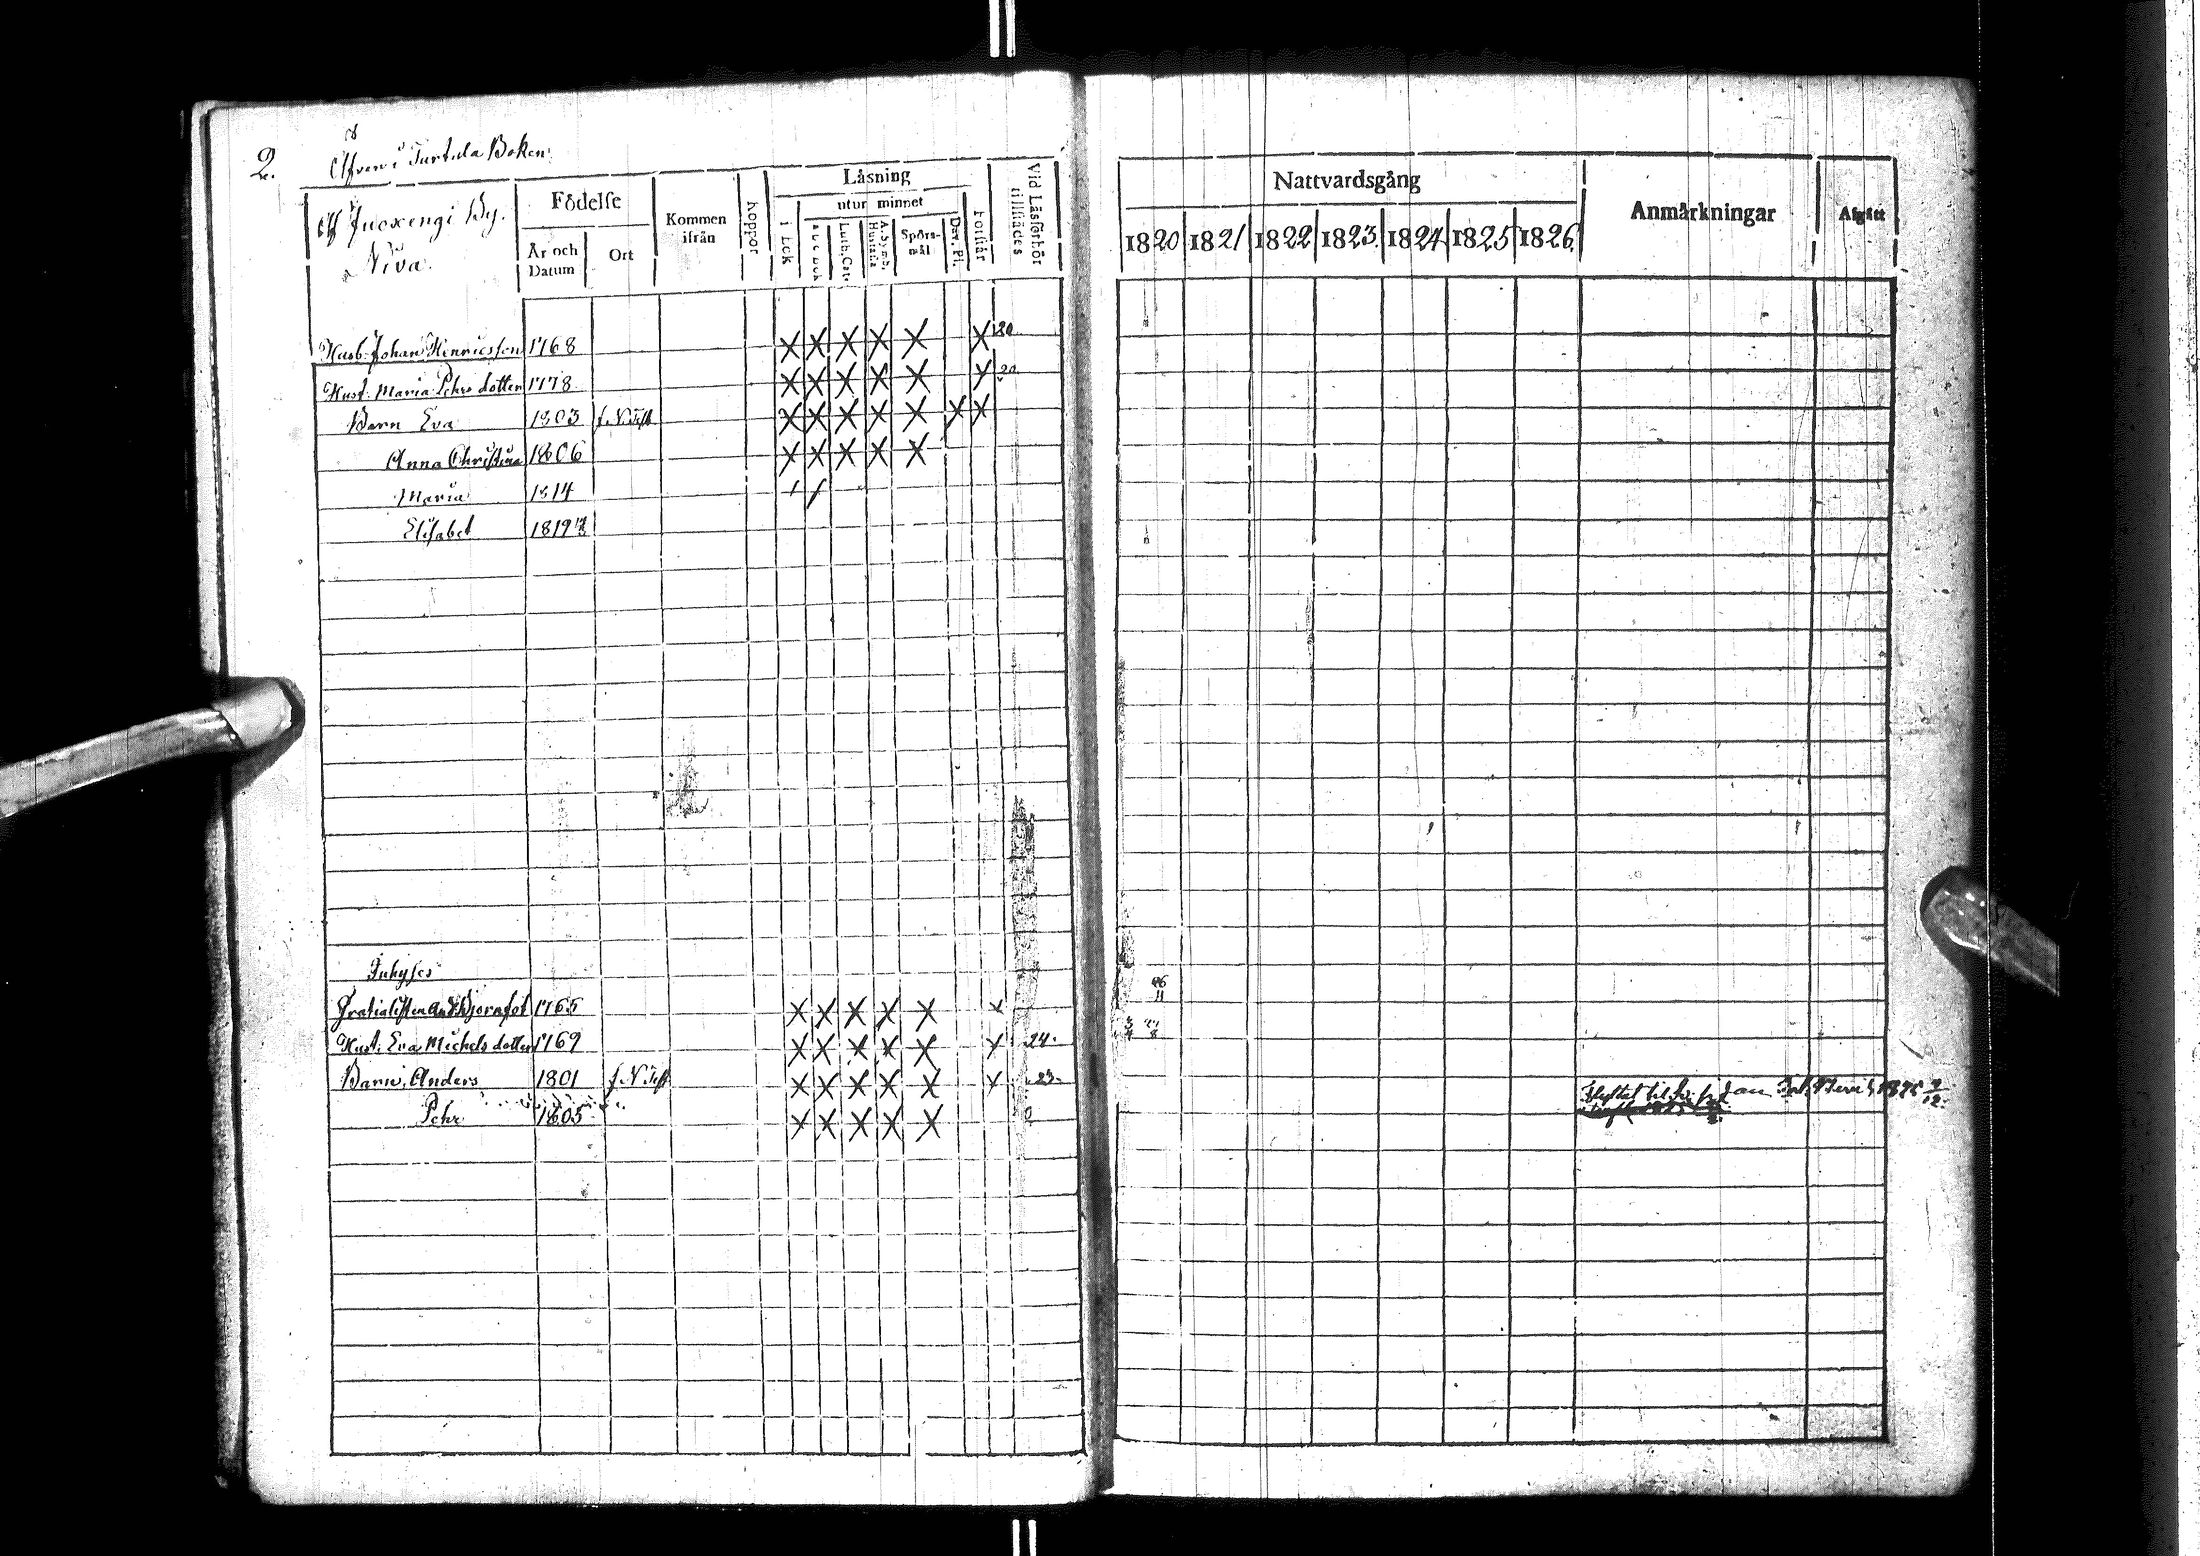 2.
i Turtula Boken
Juoxengi By.
Niva.
Födelse
År och Datum
Ort
Kommen ifrån
Koppor
Läsning
utur minnet
i Bok
A B C Bok
Luth. Cat.
A. Symb. Hustafla
Spörsmål
Dav. Ps.
Förstår
Vid Läsförhör tillstädes
Nattvardsgång
1820 1821 1822 1823. 1824 1825 1826.
Anmärkningar
Afgått
Husb. Johan Henricsson 1768 X X X X X X 20
Hust. Maria Pehrs dotter 1778 X X X X X X 20
Barn Eva 1803 X X X X X X X
Anna Christina 1806 X X X X X
Maria 1814
Elisabet 1819
Inhyses
Gratialisten And. Björnfot 1765 X X X X X X
Hust. Eva Michels dotter 1769 X X X X X X 24.
Barn, Anders 1801 X X X X X X 23.
Pehr 1805 X X X X X